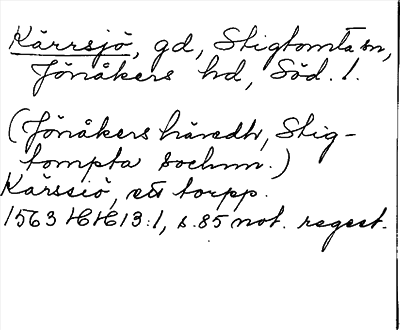 Kärrsjö, gd, Stigtomta sn,
Jönåkers hd, Söd. l.
(Jönåkers häredh, Stig-
tompta sochnn.)
Kärssiö, ett torpp.
1563 HH 13:1, s. 85 not. regest.